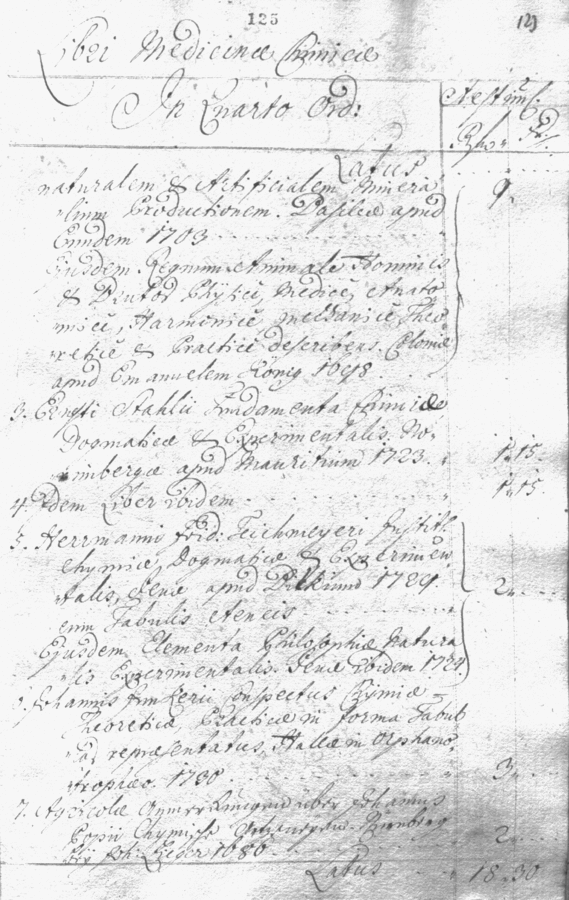 125
123
Libri Medicinæ Chimicæ
In Quarto Ord:
Aestim.
Rfl. Xr.
Latus
naturalem & Artificialem Minera
lium Productionem. Basileæ apud
Eundem 1703
Ejusdem Regnum Animale Hominis
& Brutor Physicè, Medicè, Anato
micè, Harmonicè, Mechanicè, Theo
reticè & Practicè describens. Coloniæ
apud Emanuelem König 1698
9.
3. Ernesti Stahlii Fundamenta Chimiæ
Dogmaticæ & Experimentalis. No-
rimbergæ apud Mauritium 1723.
1.15
4. Idem Liber ibidem
1.15
5. Herrmanni Frid: Teichmeyeri Institt.
Chymiæ, Dogmaticæ & Experimen
talis, Jenæ apud 1729.
cum Tabulis Aeneis
2.
Ejusdem Elementa Philosophiæ Natura
lis Experimentalis. Jenæ ibidem 1724.
6. Johannis Junkerii Conspectus Chymiæ
Theoreticæ Practicæ in forma Tabul
repræsentatus, Hallæ in Orphano
tropheo. 1730
3.
7. Agricolæ über Johannis
Popii Chymische
1686
2
Latus
18.30